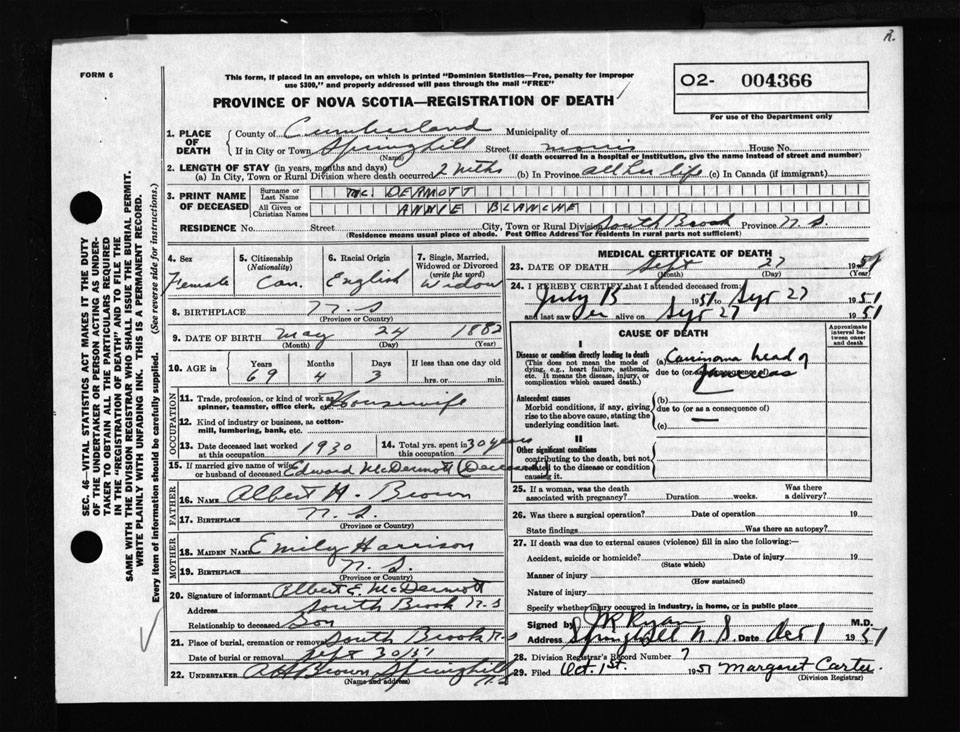 R.
FORM 6
This form, if placed in an envelope, on which is printed "Dominion Statistics—Free, penalty for improper
use $300," and properly addressed will pass through the mail "FREE"
O2- 004366
For use of the Department only
PROVINCE OF NOVA SCOTIA—REGISTRATION OF DEATH
SEC. 46—VITAL STATISTICS ACT MAKES IT THE DUTY
OF THE UNDERTAKER OR PERSON ACTING AS UNDER-
TAKER TO OBTAIN ALL THE PARTICULARS REQUIRED
IN THE "REGISTRATION OF DEATH" AND TO FILE THE
SAME WITH THE DIVISION REGISTRAR WHO SHALL ISSUE THE BURIAL PERMIT.
WRITE PLAINLY WITH UNFADING INK. THIS IS A PERMANENT RECORD.
Every item of information should be carefully supplied. (See reverse side for instructions.)
1. PLACE OF DEATH County of Cumberland Municipality of
If in City or Town Springhill Street Morris House No.
(Name) (If death occurred in a hospital or institution, give the name instead of street and number)
2. LENGTH OF STAY (in years, months and days)
(a) In City, Town or Rural Division where death occurred 2 Mths (b) In Province all her life (c) In Canada (if immigrant)
3. PRINT NAME OF DECEASED Surname or Last Name Mc. DERMOTT
All Given or Christian Names ANNIE BLANCHE
RESIDENCE No. Street City, Town or Rural Division South Brook Province N.S
(Residence means usual place of abode. Post Office Address for residents in rural parts not sufficient)
4. Sex Female
5. Citizenship (Nationality) Can.
6. Racial Origin English
7. Single, Married, Widowed or Divorced (write the word) Widow
8. BIRTHPLACE N.S
(Province or Country)
9. DATE OF BIRTH May 24 1882
(Month) (Day) (Year)
10. AGE in Years 69 Months 4 Days 3 If less than one day old hrs. or min.
OCCUPATION
11. Trade, profession, or kind of work as spinner, teamster, office clerk, etc. Housewife
12. Kind of industry or business, as cotton-mill, lumbering, bank, etc.
13. Date deceased last worked at this occupation 1930
14. Total yrs. spent in this occupation 30 years
15. If married give name of wife or husband of deceased Edward McDermott (Deceased)
FATHER
16. NAME Albert H. Brown
17. BIRTHPLACE N.S.
(Province or Country)
MOTHER
18. MAIDEN NAME Emily Harrison
19. BIRTHPLACE N.S.
(Province or Country)
20. Signature of informant Albert E. McDermott
Address South Brook N.S
Relationship to deceased Son
21. Place of burial, cremation or removal South Brook N.S
Date of burial or removal Sept 30/51
22. UNDERTAKER Brown Springhill N.S
(Name and address)
MEDICAL CERTIFICATE OF DEATH
23. DATE OF DEATH Sept 27 1951
(Month) (Day) (Year)
24. I HEREBY CERTIFY that I attended deceased from:
July 13 1951 to Sept 27 1951
and last saw her alive on Sept 27 1951
CAUSE OF DEATH
Approximate interval between onset and death
I
Disease or condition directly leading to death
(This does not mean the mode of dying, e.g., heart failure, asthenia, etc. It means the disease, injury, or complication which caused death.)
(a) Carcinoma head of
due to (or as a consequence of) pancreas
Antecedent causes
Morbid conditions, if any, giving rise to the above cause, stating the underlying condition last.
(b)
due to (or as a consequence of)
(c)
II
Other significant conditions
contributing to the death, but not related to the disease or condition causing it.
25. If a woman, was the death associated with pregnancy? Duration weeks. Was there a delivery?
26. Was there a surgical operation? Date of operation 19
State findings Was there an autopsy?
27. If death was due to external causes (violence) fill in also the following:—
Accident, suicide or homicide? Date of injury 19
(State which)
Manner of injury
(How sustained)
Nature of injury
Specify whether injury occurred in industry, in home, or in public place
Signed by JR Ryan M.D.
Address Springhill N.S. Date Oct 1 1951
28. Division Registrar's Record Number 7
29. Filed Oct. 1st. 1951 Margaret Carter.
(Division Registrar)